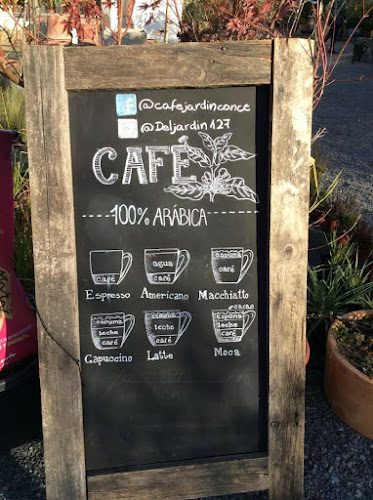 @cafejardinconce
@Deljardin127
CAFÉ
100% ARÁBICA
café
agua
café
espuma
café
Espresso Americano Macchiatto
espuma
leche
café
espuma
leche
café
cacao
espuma
leche
café
Capuccino Latte Moca